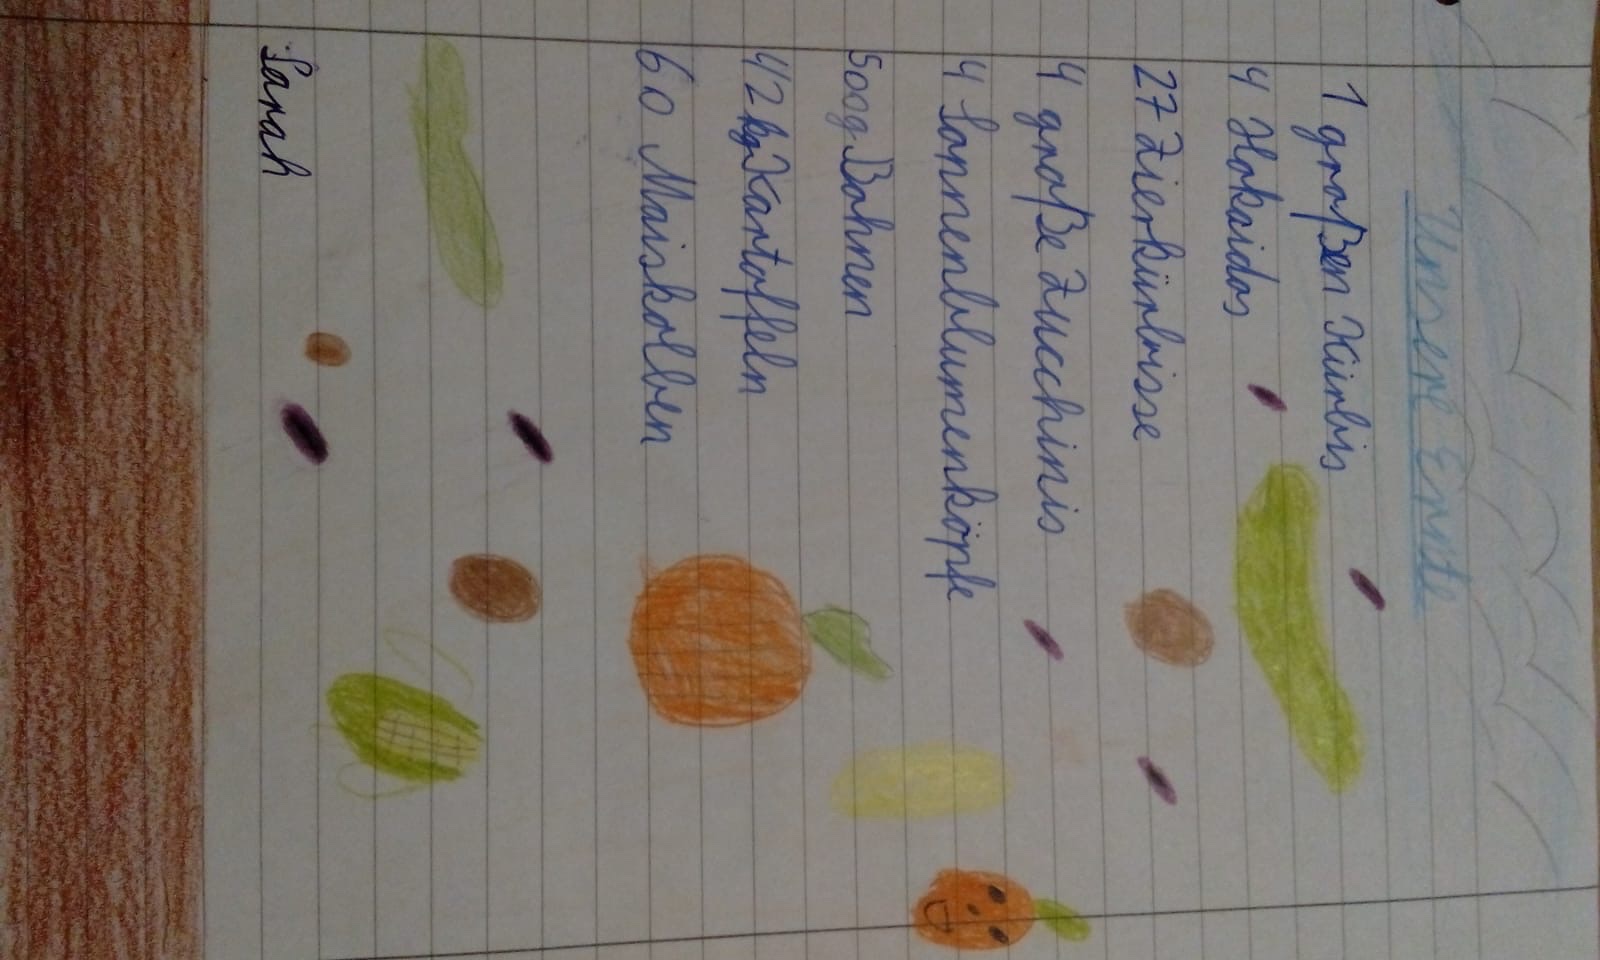 Unsere Ernte
1 großen Kürbis
4 Hokaidos
27 Zierkürbisse
4 große Zucchinis
4 Sonnenblumenköpfe
500g Bohnen
42 kg Kartoffeln
60 Maiskolben
Sarah